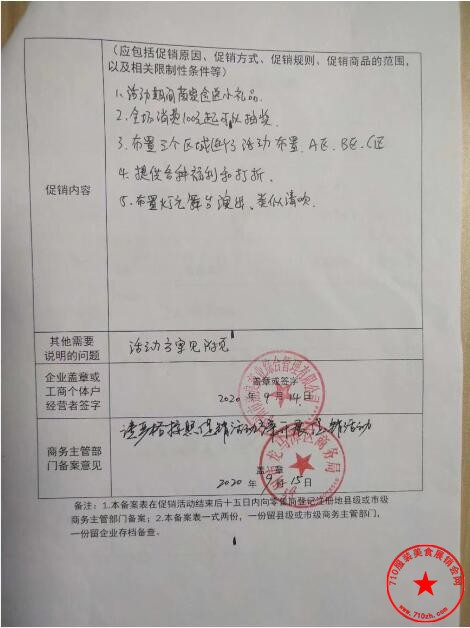 (应包括促销原因、促销方式、促销规则、促销商品的范围，
以及相关限制性条件等)
1、活动期间有发送小礼品.
2、全场消费100起可以抽奖
3、布置三个区域进行活动布置.A区、B区、C区
4、提供各种福利和打折.
5、布置灯光舞台演出、类似清吹.
促销内容
其他需要
说明的问题
活动方案见附页
企业盖章或
工商个体户
经营者签字
盖章或签字
2020年9月14日
商务主管部
门备案意见
请严格按照促销活动方案开展促销活动
盖章
2020年9月15日
备注：1.本备案表在促销活动结束后十五日内向零售商登记注册地县级或市级
商务主管部门备案；2.本备案表一式两份，一份留县级或市级商务主管部门，
一份留企业存档备查。
710服装美食展销会网
www.710zh.com